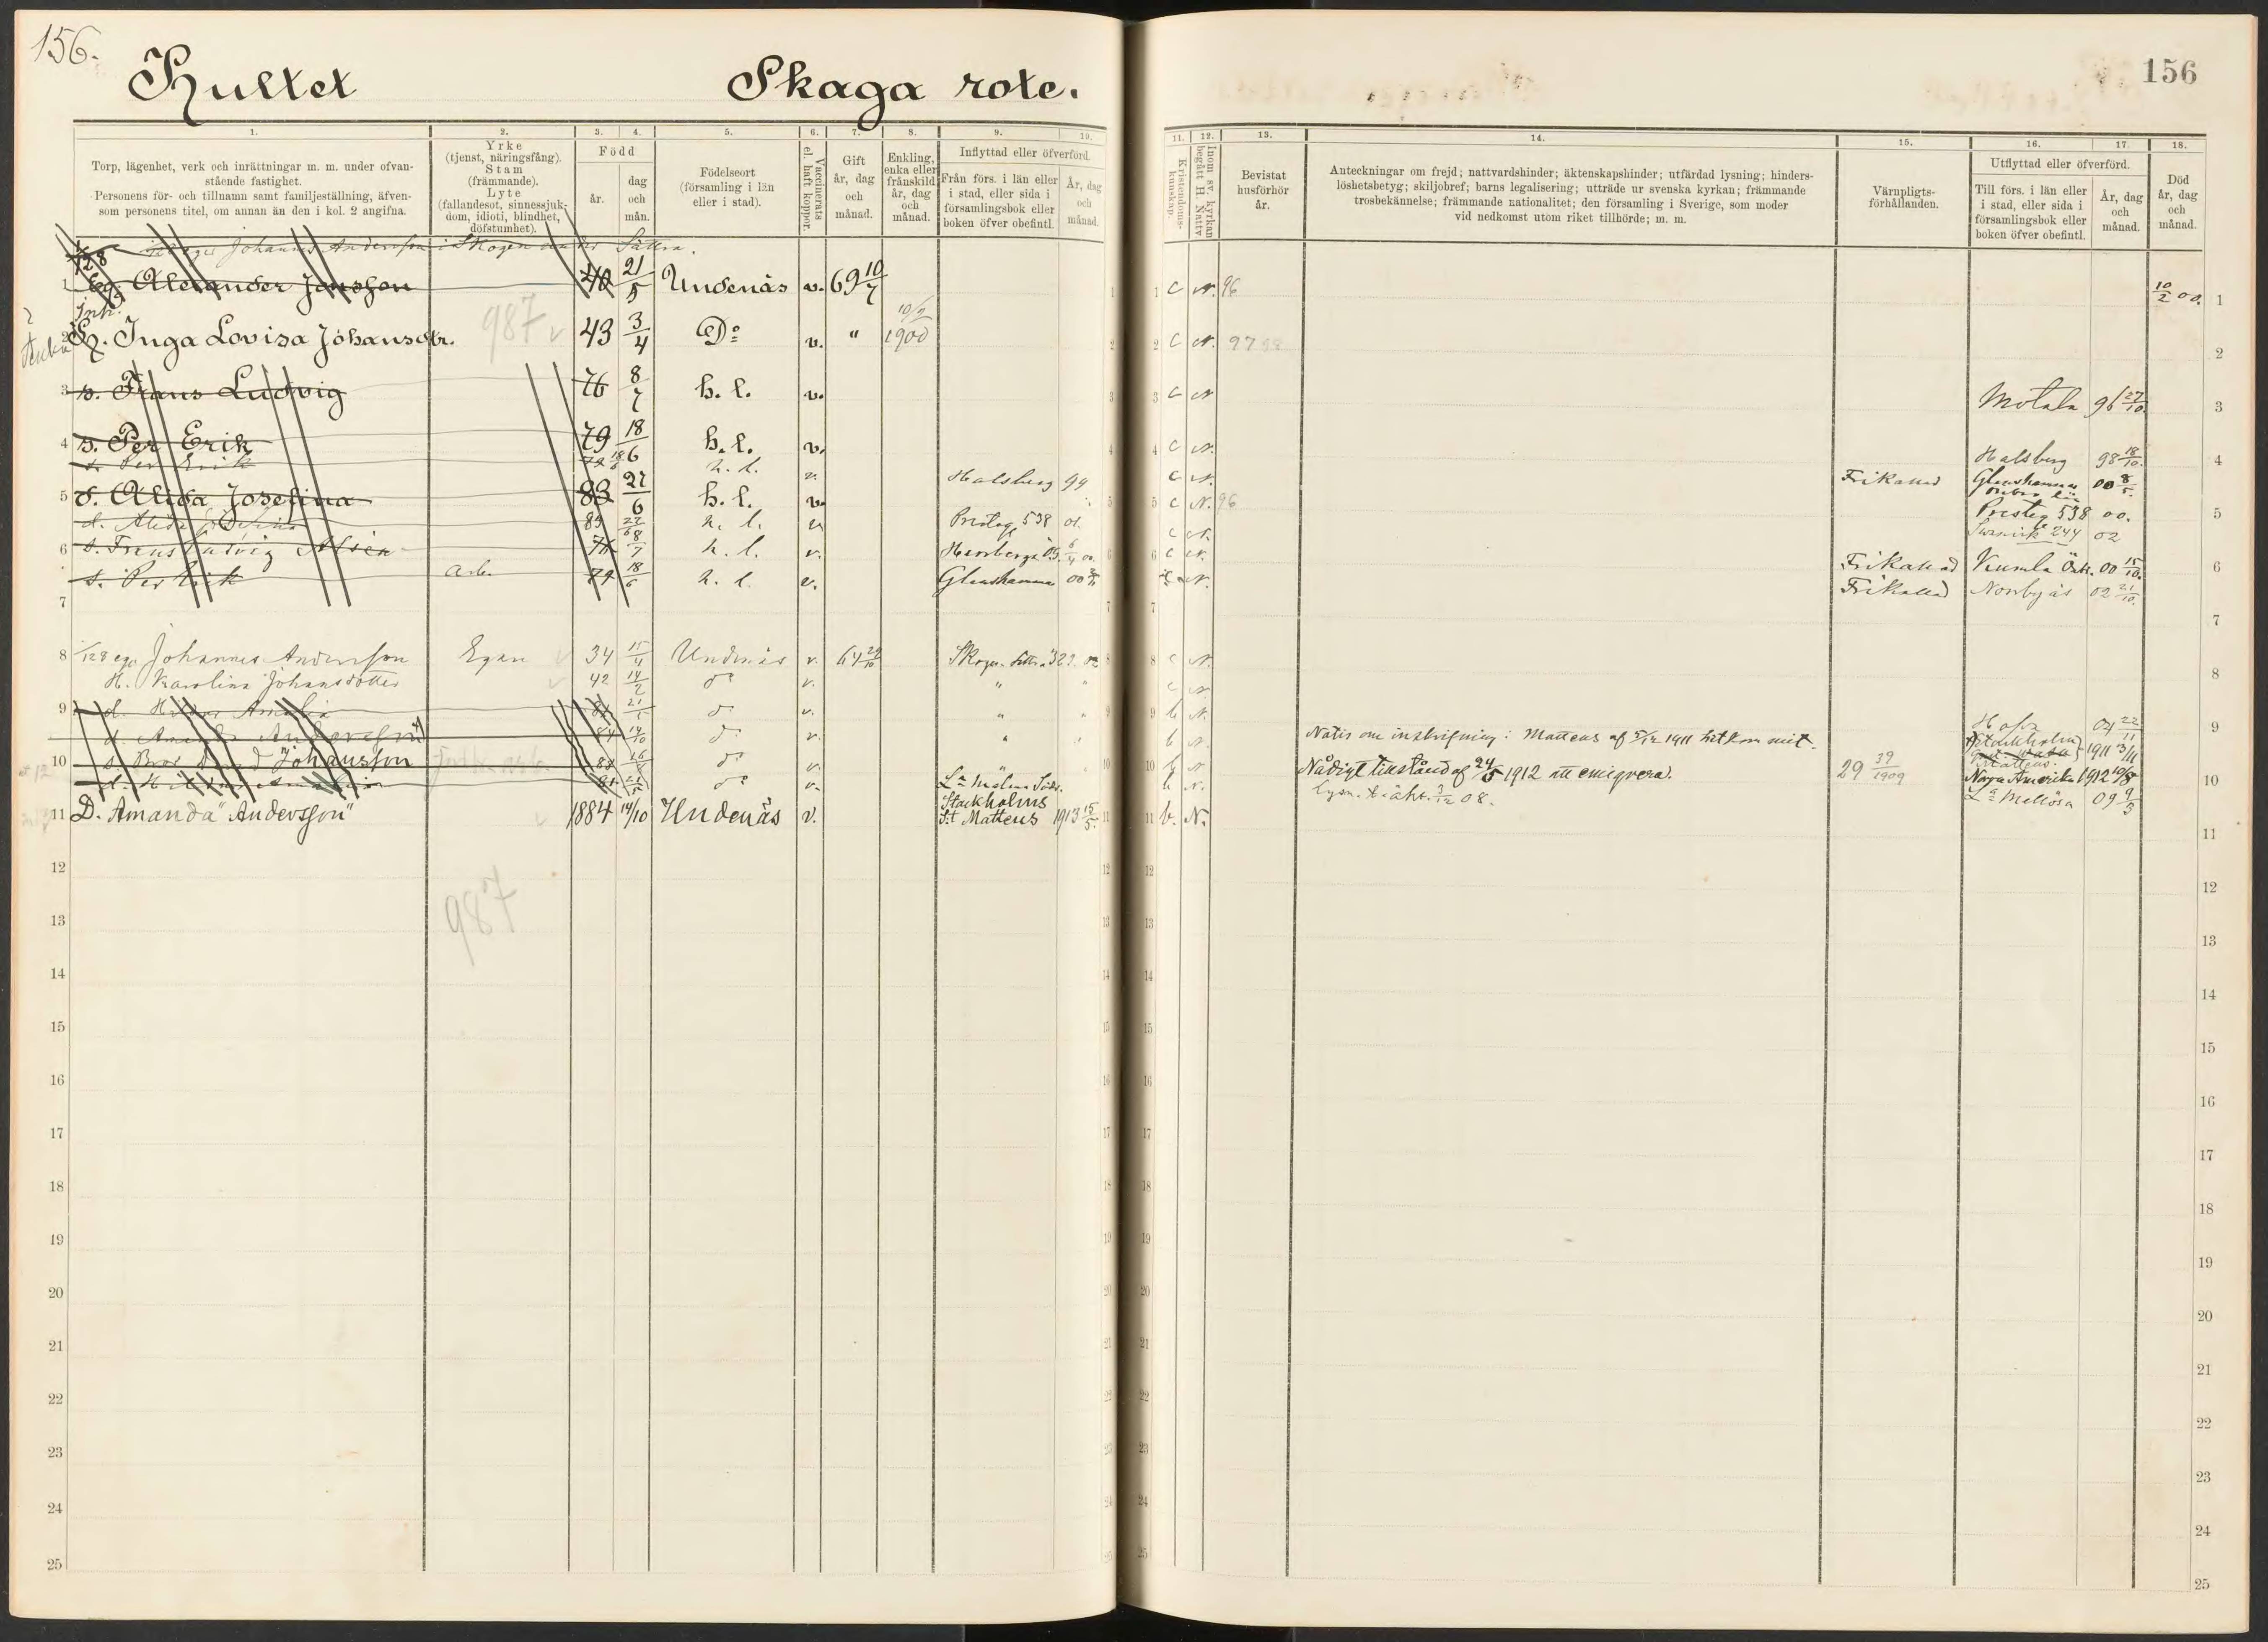 156.
Hultet Skaga rote.
156
1. 2. 3. 4. 5. 6. 7. 8. 9. 10.
Torp, lägenhet, verk och inrättningar m. m. under ofvan-
stående fastighet.
Personens för- och tillnamn samt familjeställning, äfven-
som personens titel, om annan än den i kol. 2 angifna.
Yrke
(tjenst, näringsfång).
Stam
(främmande).
Lyte
(fallandesot, sinnessjuk-
dom, idioti, blindhet,
döfstumhet).
Född
år.
dag
och
mån.
Födelseort
(församling i län
eller i stad).
Vaccinerats
el. haft koppor.
Gift
år, dag
och
månad.
Enkling,
enka eller
frånskild
år, dag
och
månad.
Inflyttad eller öfverförd.
Från förs. i län eller
i stad, eller sida i
församlingsbok eller
boken öfver obefintl.
År, dag
och
månad.
11. 12. 13. 14. 15. 16. 17. 18.
Kristendoms-
kunskap.
Inom sv. kyrkan
begått H. Nattv
Bevistat
husförhör
år.
Anteckningar om frejd; nattvardshinder; äktenskapshinder; utfärdad lysning; hinders-
löshetsbetyg; skiljobref; barns legalisering; utträde ur svenska kyrkan; främmande
trosbekännelse; främmande nationalitet; den församling i Sverige, som moder
vid nedkomst utom riket tillhörde; m. m.
Värnpligts-
förhållanden.
Utflyttad eller öfverförd.
Till förs. i län eller
i stad, eller sida i
församlingsbok eller
boken öfver obefintl.
År, dag
och
månad.
Död
år, dag
och
månad.
Johannes Andersson i Skogen under Sättra.
1 Eg. Alexander Jonsson 40 21/5 Undenäs v. 69 10/7 C N. 96 10/2 00. 1
Enka
2 H. Inga Lovisa Johansdtr. 987 43 3/4 Do v. " 10/2 1900 C N. 97 98 2
3 s. Frans Ludvig 76 8/7 h. l. v. C N Motala 96 27/10 3
4 s. Per Erik 79 18/6 h. l. v. C N. Halsberg 98 18/10. 4
s. Per Erik 79 18/6 h. l. v. Halsberg 99 C N. Frikallad Glanshammar Örebro län 00 8/5.
5 d. Alida Josefina 83 27/6 h. l. v. C N. 96 Presteg 538 00. 5
d. Alida Josefina 83 27/6 h. l. v Presteg. 538 01. C N. 244 02
6 s. Frans Ludvig Alsén 76 8/7 h. l. v. C N. Frikallad Kumla Örb. 00 15/10. 6
s. Per Erik Arb. 79 18/6 h. l. v. Glanshammar 00 N. Frikallad Norrbyås 02 21/10.
7 7
8 1/128 eg. Johannes Andersson Egare 34 15/4 Undenäs v. 64 29/10 Skogen Sättra 329 02 C N. 8
H. Karolina Johansdotter 42 14/2 do v. " " C N.
9 d. Hilda Amalia 81 21/5 do v. " " b N. Hofva 04 22/11 9
d. Amanda Andersson 84 14/10 do v. " b N. Notis om inskrifning i Matteus af 5/12 1911 hitkom mit. Stockholm Matteus. 1911 3/11
10 s. Bror David Johansson 88 do v. b N Nådigt tillstånd af 24/5 1912 att emigrera. 29 39/1909 Norra Amerika 1912 10/8 10
d. Hilda Amalia 81 21/5 do v. b N. Lysn. t. äkt. 3/12 08. La Mellösa 09 9/3
11 D. "Amanda" Andersson" 1884 14/10 Undenäs v. Stockholms S:t Matteus 1913 15/5. b. N. 11
12 12
987
13 13
14 14
15 15
16 16
17 17
18 18
19 19
20 20
21 21
22 22
23 23
24 24
25 25